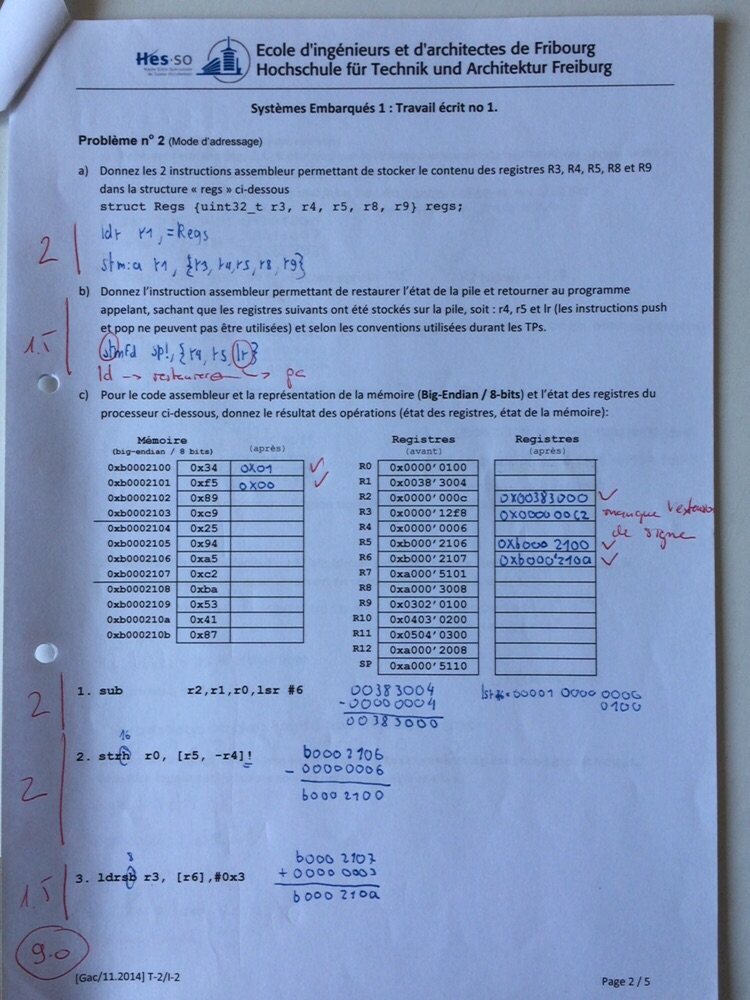 Hes·so
Ecole d'ingénieurs et d'architectes de Fribourg
Hochschule für Technik und Architektur Freiburg
Systèmes Embarqués 1 : Travail écrit no 1.
Problème n° 2 (Mode d'adressage)
a) Donnez les 2 instructions assembleur permettant de stocker le contenu des registres R3, R4, R5, R8 et R9
dans la structure « regs » ci-dessous
struct Regs {uint32_t r3, r4, r5, r8, r9} regs;
ldr r1, =Regs
2
stmia r1, {r3, r4, r5, r8, r9}
b) Donnez l'instruction assembleur permettant de restaurer l'état de la pile et retourner au programme
appelant, sachant que les registres suivants ont été stockés sur la pile, soit : r4, r5 et lr (les instructions push
et pop ne peuvent pas être utilisées) et selon les conventions utilisées durant les TPs.
1.5
stmfd sp!, {r4, r5, lr}
ld → restaurer → pc
c) Pour le code assembleur et la représentation de la mémoire (Big-Endian / 8-bits) et l'état des registres du
processeur ci-dessous, donnez le résultat des opérations (état des registres, état de la mémoire):
Mémoire
(big-endian / 8 bits) (après)
0xb0002100 0x34 0x01
0xb0002101 0xf5 0x00
0xb0002102 0x89
0xb0002103 0xc9
0xb0002104 0x25
0xb0002105 0x94
0xb0002106 0xa5
0xb0002107 0xc2
0xb0002108 0xba
0xb0002109 0x53
0xb000210a 0x41
0xb000210b 0x87
Registres Registres
(avant) (après)
R0 0x0000'0100
R1 0x0038'3004
R2 0x0000'000c 0x00383000
R3 0x0000'12f8 0x000000C2 manque l'extension
R4 0x0000'0006 de signe
R5 0xb000'2106 0xb000 2100
R6 0xb000'2107 0xb000'210a
R7 0xa000'5101
R8 0xa000'3008
R9 0x0302'0100
R10 0x0403'0200
R11 0x0504'0300
R12 0xa000'2008
SP 0xa000'5110
2
1. sub r2,r1,r0,lsr #6
00383004
-00000004
00383000
00001 0000 0000
0100
2
16
2. strh r0, [r5, -r4]!
b0002106
- 00000006
b0002100
1.5
8
3. ldrsb r3, [r6],#0x3
b0002107
+ 00000003
b000210a
9.0
[Gac/11.2014] T-2/I-2
Page 2 / 5